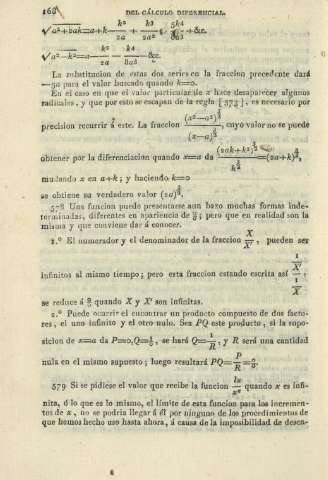 160 DEL CÁLCULO DIFERENCIAL.
√a²+2ak=a+k— k²/2a + k³/2a² — 5k⁴/8a³ + &c.
√a²—k²=a— k²/2a — k⁴/8a³ — &c.
La substitucion de estas dos series en la fraccion precedente dará
—5a para el valor buscado quando k=0.
En el caso en que el valor particular de x hace desaparecer algunos
radicales, y que por esto se escapan de la regla [573], es necesario por
precision recurrir á este. La fraccion (x²—a²)^(3/2)/(x—a)^(3/2), cuyo valor no se puede
obtener por la diferenciacion quando x=a da (2ak+k²)^(3/2)/k^(3/2) =(2a+k)^(3/2),
mudando x en a+k; y haciendo k=0
se obtiene su verdadero valor (2a)^(3/2).
578 Una funcion puede presentarse aun baxo muchas formas inde-
terminadas, diferentes en apariencia de 0/0; pero que en realidad son la
misma y que conviene dar á conocer.
1.º El numerador y el denominador de la fraccion X/X′, pueden ser
infinitos al mismo tiempo; pero esta fraccion estando escrita así (1/X′)/(1/X),
se reduce á 0/0 quando X y X′ son infinitas.
2.º Puede ocurrir el encontrar un producto compuesto de dos facto-
res, el uno infinito y el otro nulo. Sea PQ este producto, si la supo-
sicion de x=a da P=0, Q=1/0, se hará Q=1/R, y R será una cantidad
nula en el mismo supuesto; luego resultará PQ=P/R=0/0.
579 Si se pidiese el valor que recibe la funcion lx/xⁿ quando x es infi-
nita, ó lo que es lo mismo, el límite de esta funcion para los incremen-
tos de x, no se podria llegar á él por ninguno de los procedimientos de
que hemos hecho uso hasta ahora, á causa de la imposibilidad de desen-